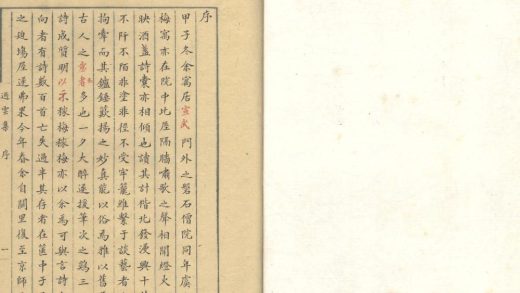 序
甲子冬余寓居宣武門外之磐石僧院同年虞
梅寓亦在院中比屋隔牆嘯歌之聲相聞燈火
映酒盞詩囊亦相傾也讀其計偕北發漫興十
不阡不陌非塗非徑不受牢籠雖繫于談藝者
拘牽而其鑪錘簸揚之妙真能以俗為雅以舊
古人之
多也一夕大醉遂援筆次之鷄三
詩成質明以示稼梅稼梅亦以余為可與言詩
向者有詩數百首亡失過半其存者在篋中于
之塲屋逐弗果今年春余自關里復至京師
序
一